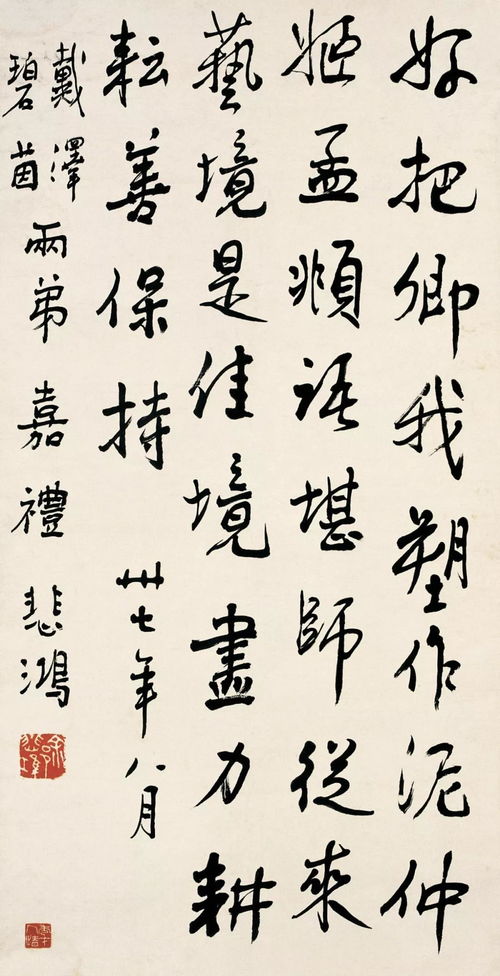 好把卿我塑作泥仲
姬孟頫語堪師從來
藝境是佳境盡力耕
耘善保持 卅七年八月
戴澤
碧茵
兩弟嘉禮 悲鴻